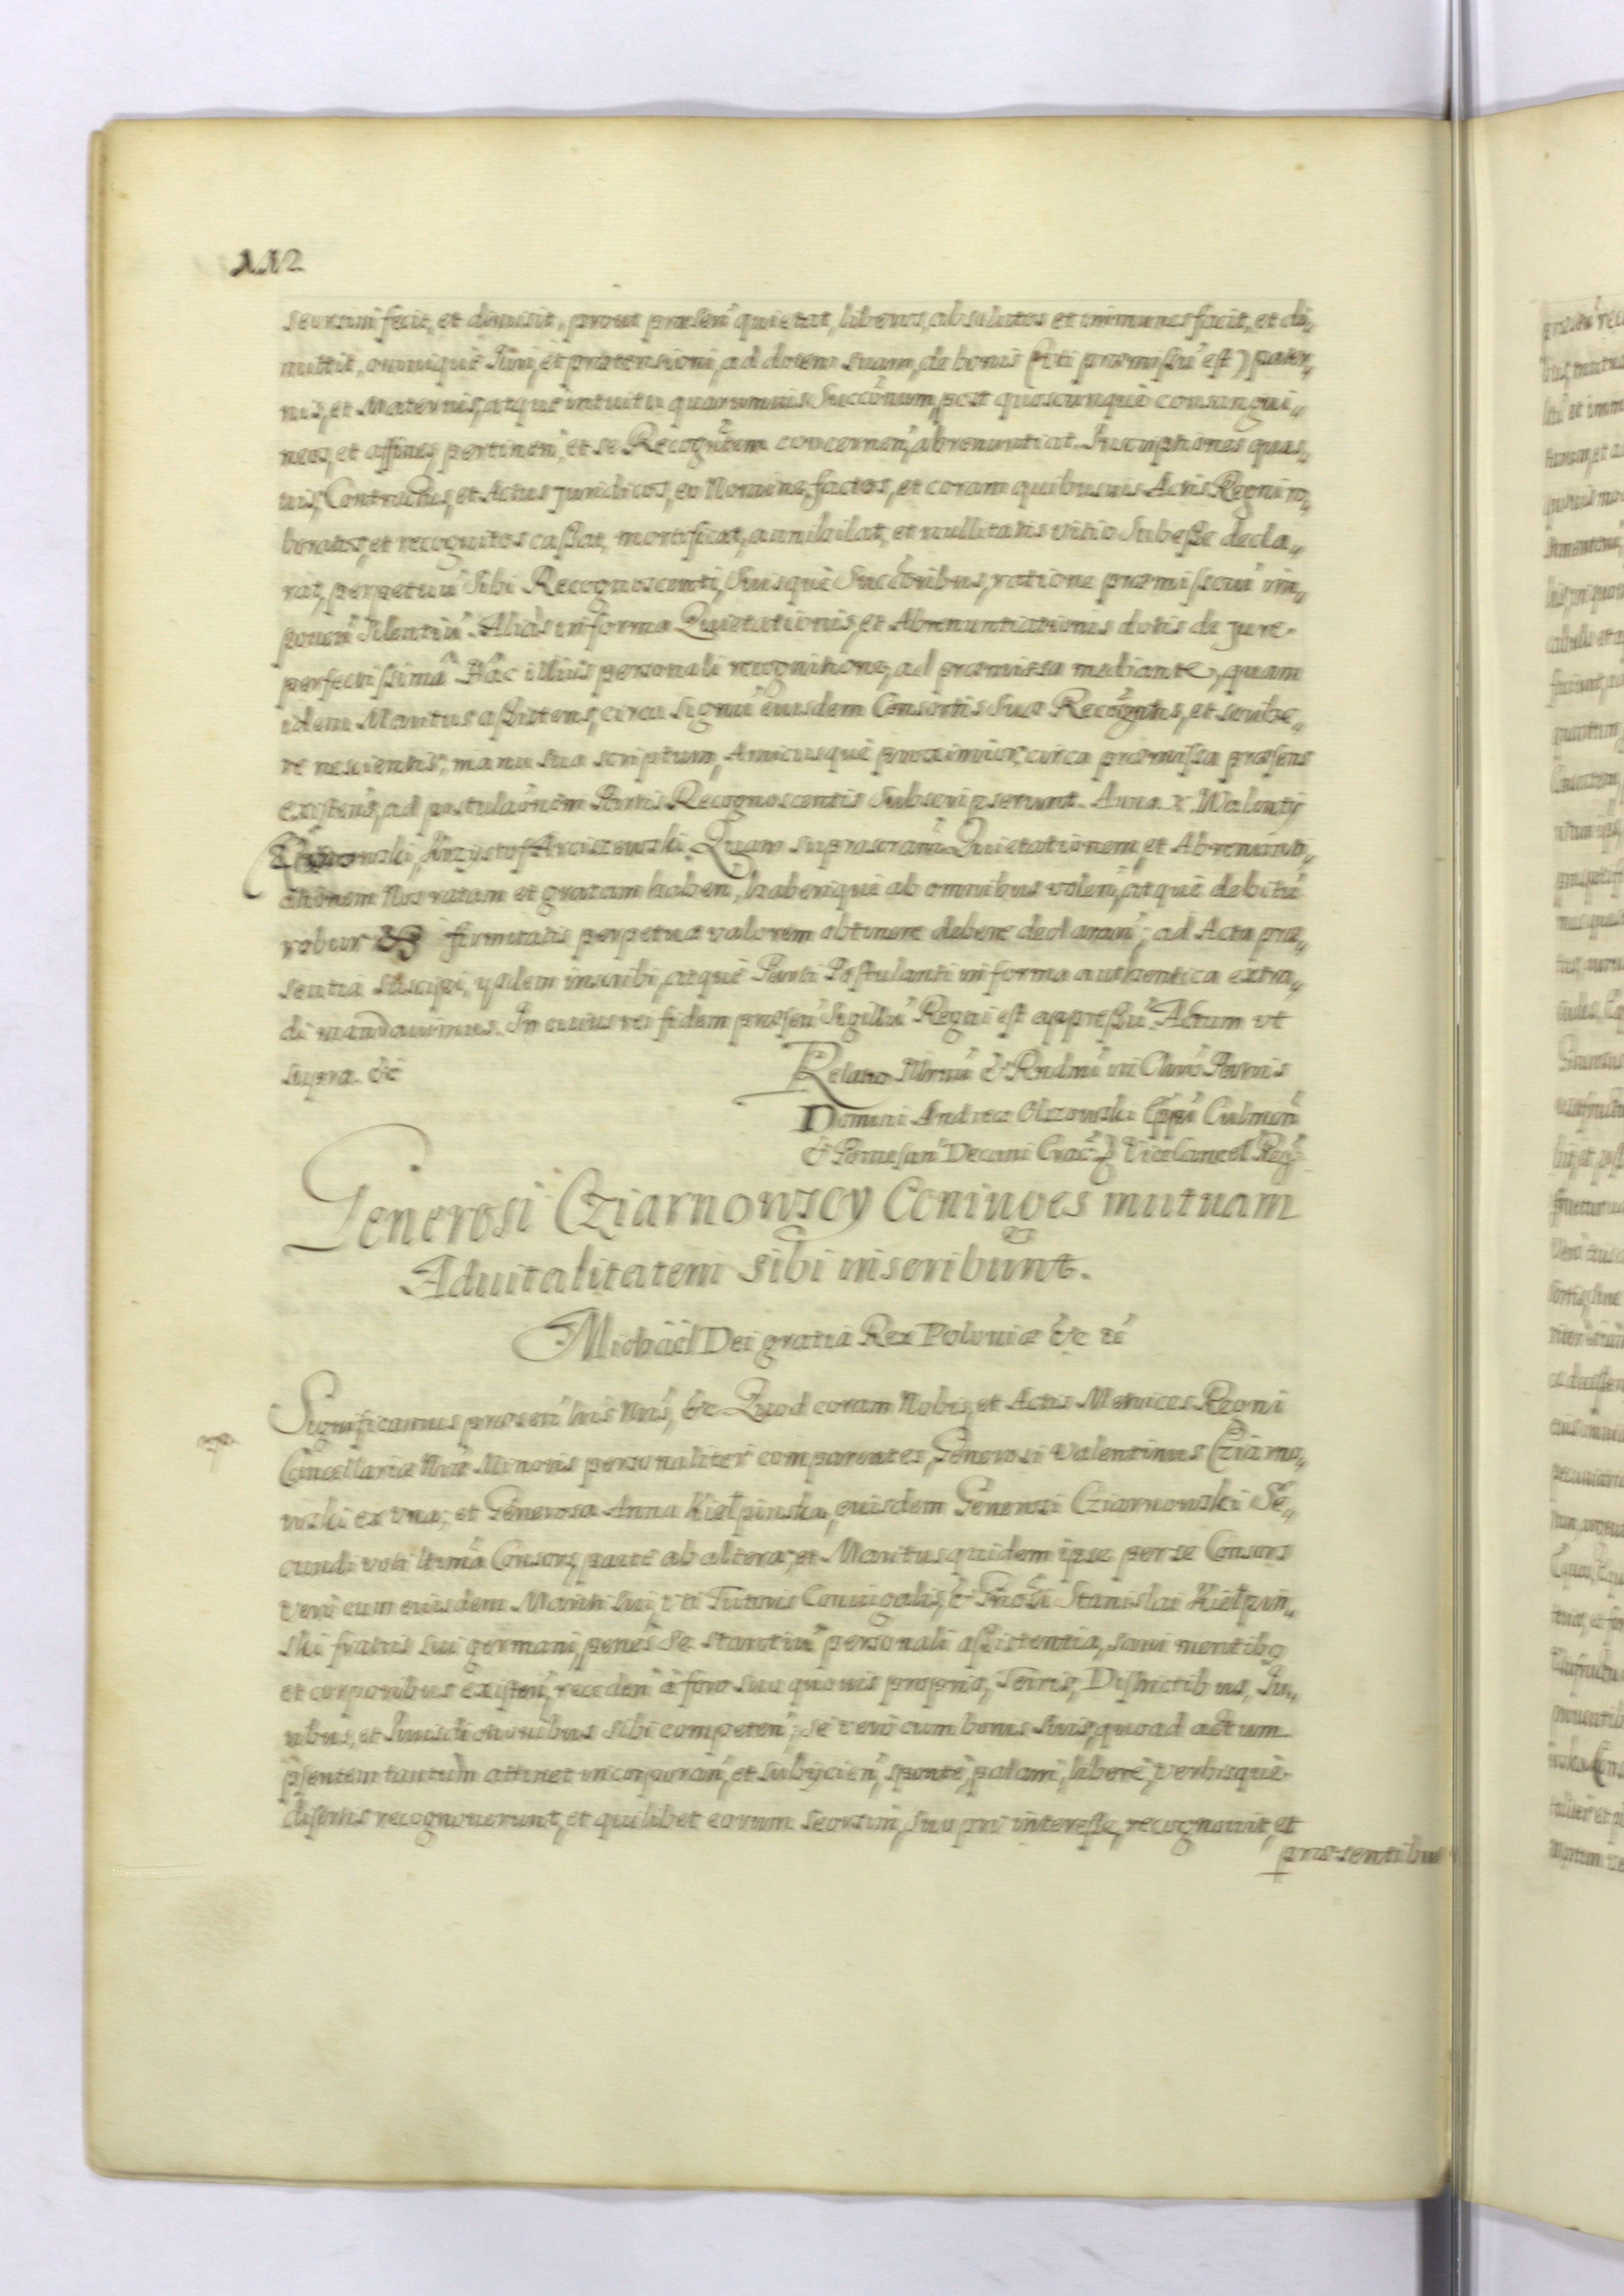 112
seorsim fecit, et dimisit, prout præsen̄ quietat, liberos, absolutos et immunes facit, et di„
mittit, omnique Juri, et prætensioni, ad dotem suam, de bonis (uti præmissū est) pater„
nis, et Maternis, atquè intuitu quarumuis Succōnum, post quoscunquè consangui„
neos, et affines, pertinen̄, et se Recogn̄tem concernen̄, abrenuntiat. Inscriptiones quas„
uis, Contractus, et Actus juridicos, eo Nomine factos, et coram quibusuis Actis Regni ro„
boratos, et recognitos cassat, mortificat, annihilat, et nullitatis vitio Subesse decla„
rat, perpetuū Sibi Recognoscenti, Suisquè Succōribus, ratione præmissoru᷈ im„
ponen̄ Silentiū. Alias in forma Quietationis, et Abrenuntiationis dotis de jure
perfectissimâ Hâc illius personali recognitione, ad præmissa mediante, quam
idem Maritus assistens, circa Signū eiusdem Consortis Suæ Recogn̄tis, et scribe„
re nescientis, manu sua scriptum, Amicusquè proximior, circa præmissa præsens
existens, ad postulaōnem Partis Recognoscentis Subscripserunt. Anna X Walenty
Krzysztof Arciszewski. Quam suprascrāam Quietationem, et Abrenunti„
ationem Nos ratam et gratam haben̄, haberiquè ab omnibus volen̄, atquè debitū
robur & firmitatis perpetuæ valorem obtinere debere declaran̄; ad Acta præ„
sentia suscipi, ijsdem inscribi, atquè Parti Postulanti in forma authentica extra„
di mandauimus. In cuius rei fidem præsen̄ Sigillū Regni est appressū. Actum vt
supra. &c
Relatio Illrmi & Rndmi in Chro Patris
Domini Andreæ Olszowski Epp̄i Culmen̄
& Pomesan̄ Decani Crac̄ R Vicecancel Regn̄
Generosi Cziarnowscy Coniuges mutuam
Aduitalitatem sibi inscribunt.
Michäël Dei gratia Rex Poloniæ &c tē
Significamus præsen̄ lris Nrīs, &c Quod coram Nobis, et Actis Metrices Regni
Cancellariæ Nræ Minoris personaliter comparentes, Generosi Valentinus Cziarno„
wski ex vna; et Generosa Anna Kiełpinska, eiusdem Generosi Cziarnowski Se„
cundi voti ltīma Consors, parte ab altera; et Maritus quidem ipse per se Consors
vero cum eiusdem Mariti sui, vti Tutoris Coniugalis, & Gnosi Stanislai Kiełpin„
ski fratris sui germani, penes se stantiū personali assistentia, sani mentibq
et corporibus existen̄, receden̄ à foro suo quouis proprio, Terris, Districtibus, Ju„
ribus, et Jurisdictionibus sibi competen̄; se vero cum bonis suis, quoad actum
pſentem tantum attinet incorporan̄, et subijcien̄, sponte, palam, liberè, verbisquè
disertis recognouerunt, et quilibet eorum seorsim, suo prī interesse, recognouit, et
præsentibus